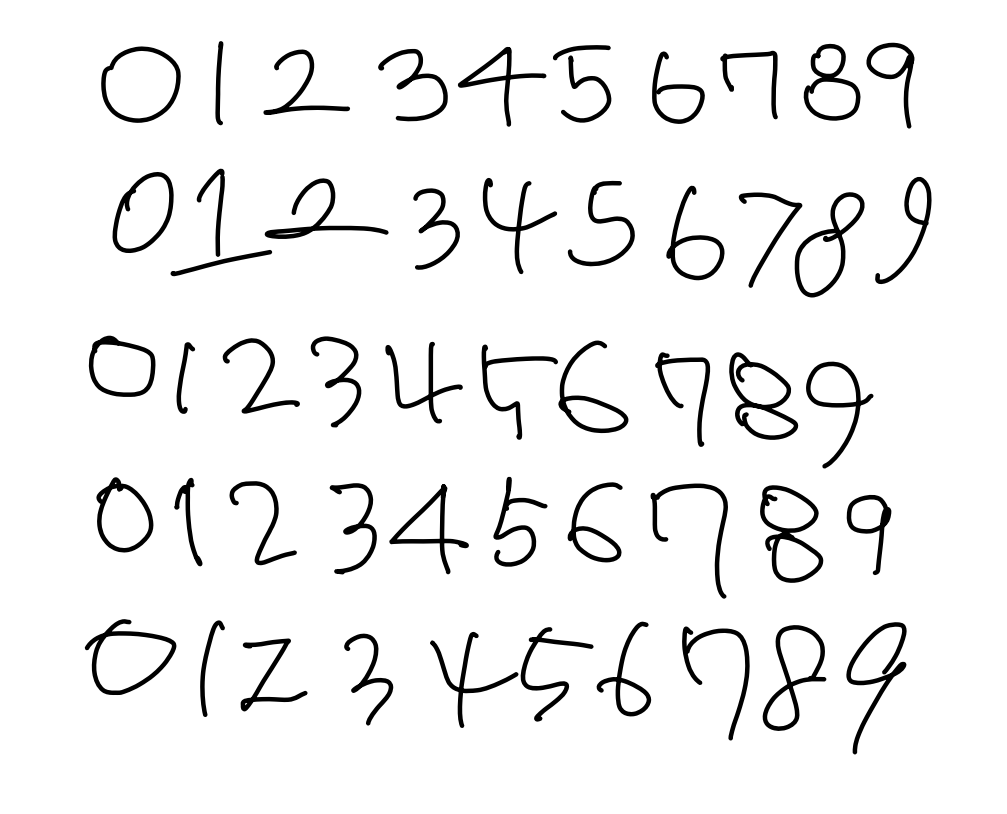 0123456789
0123456789
0123456789
0123456789
0123456789